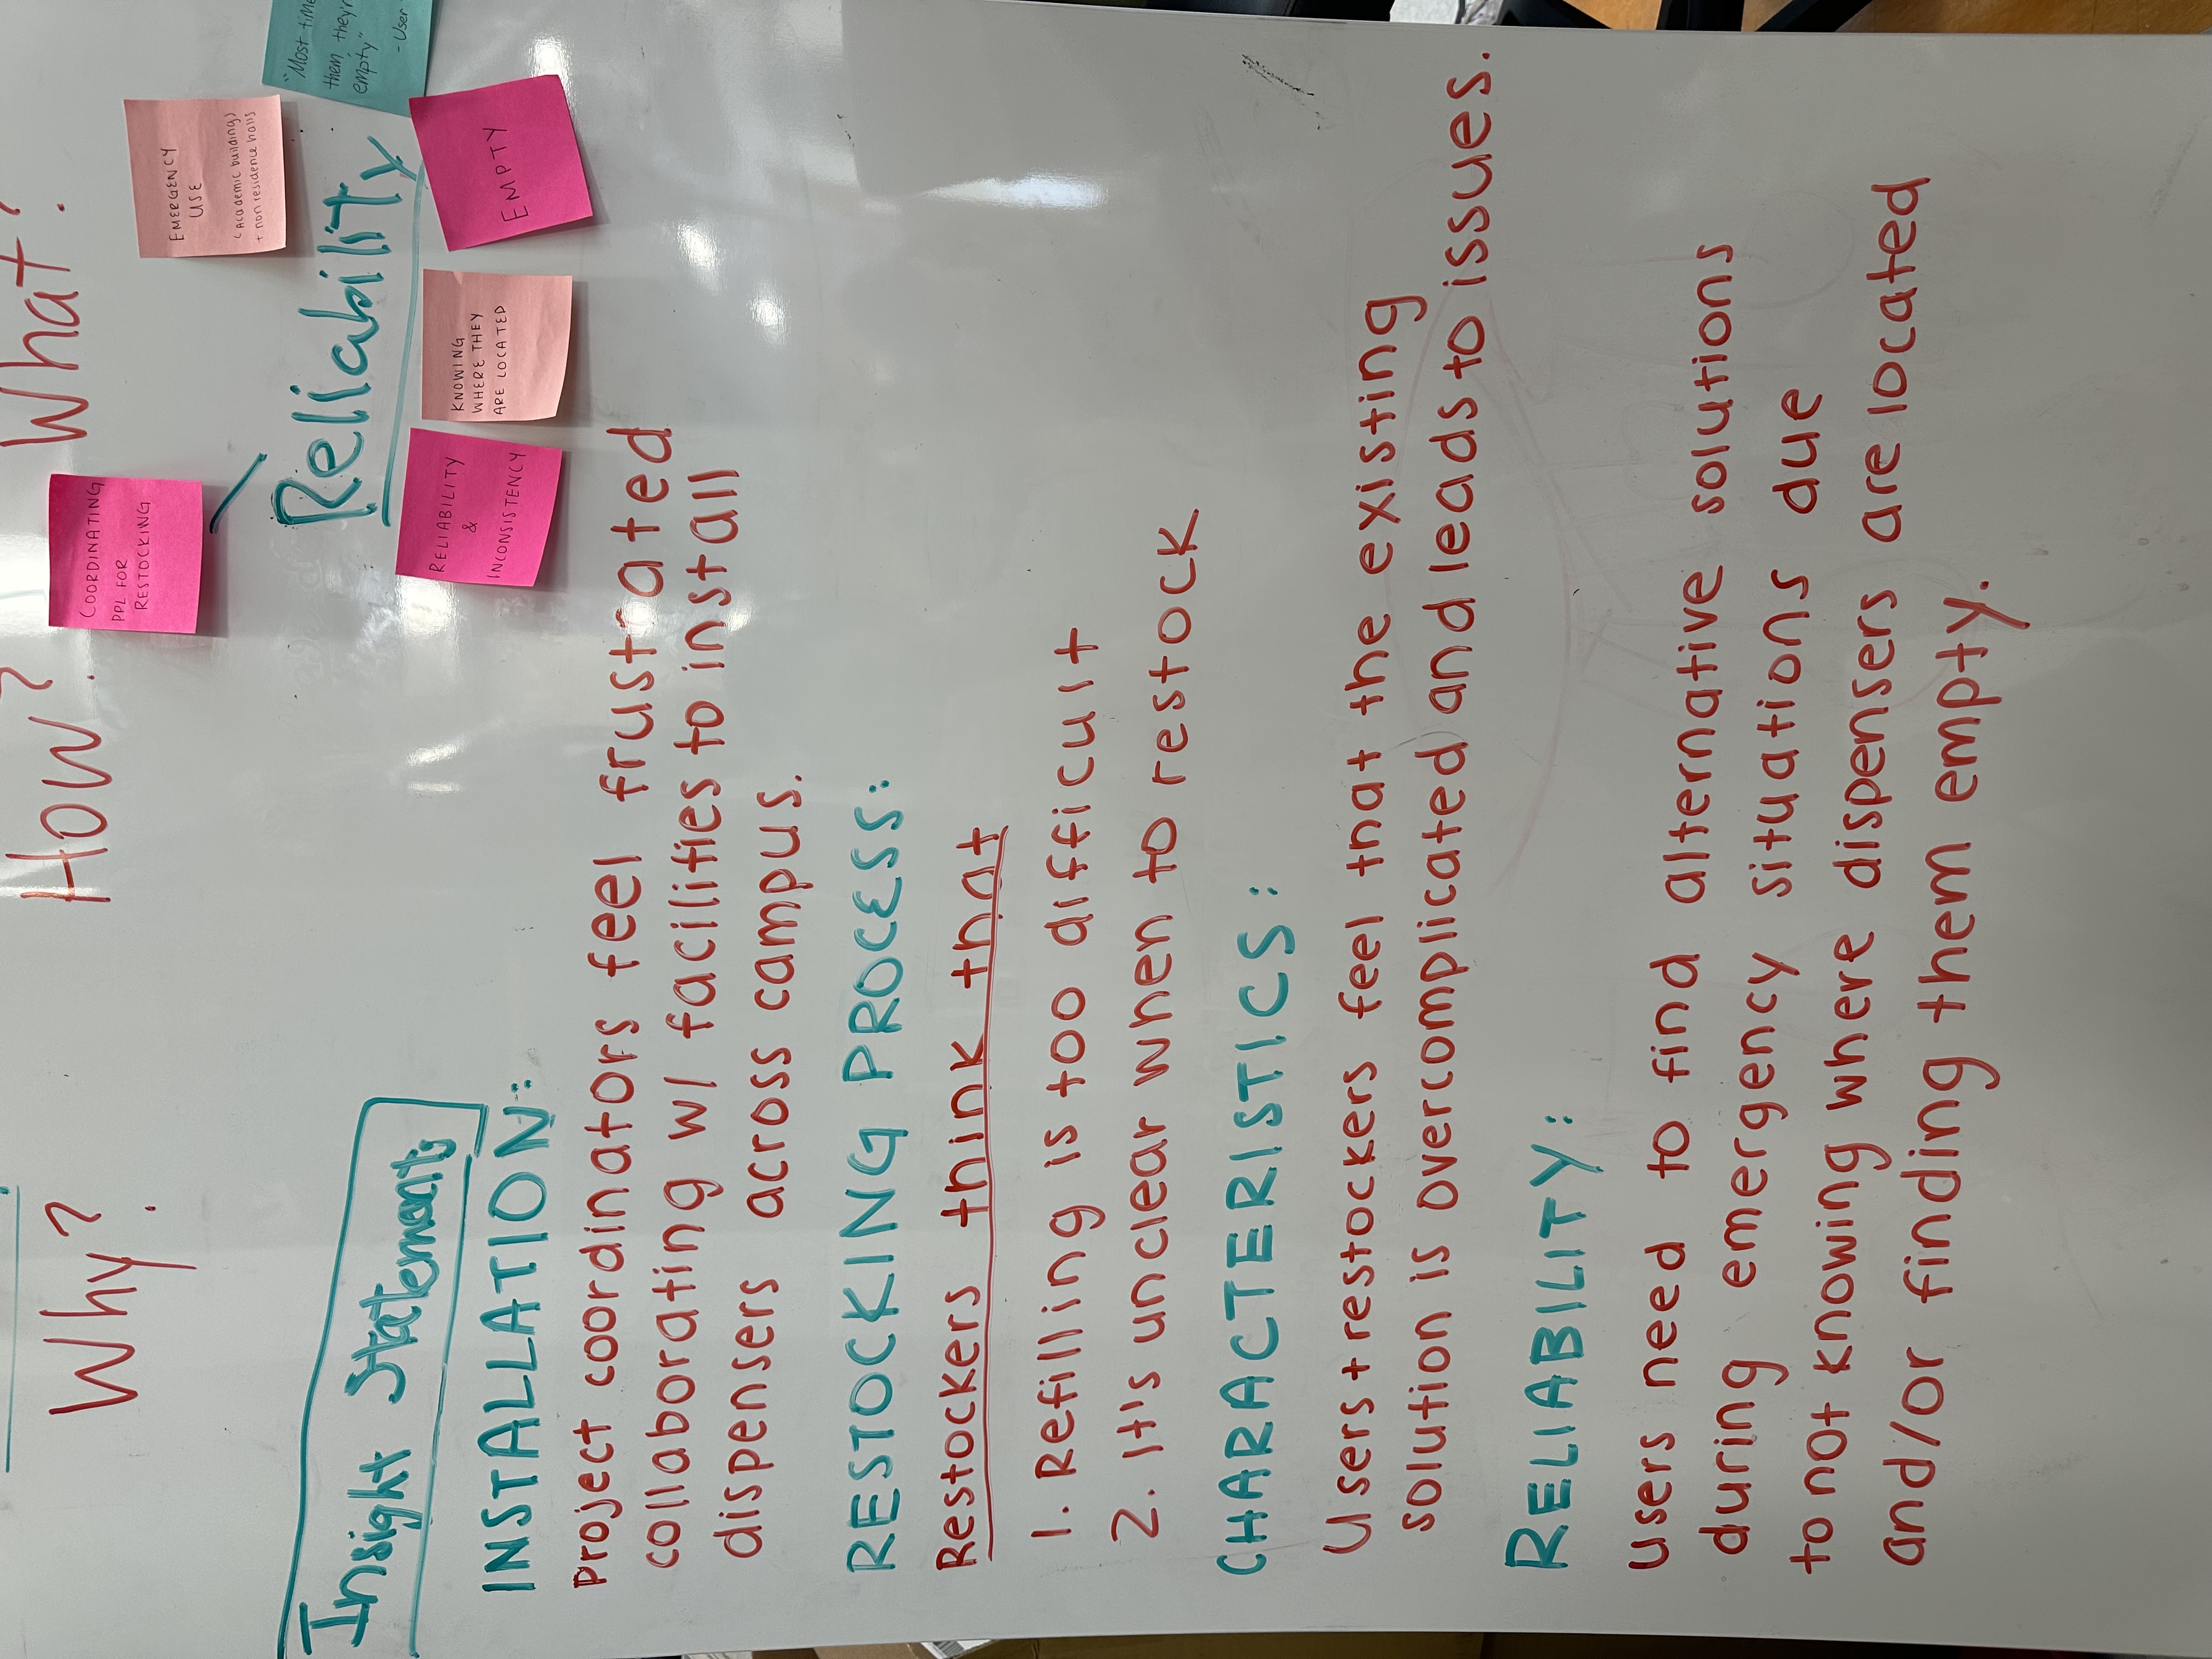 Why?
How?
What?
COORDINATING
PPL FOR
RESTOCKING
EMERGENCY
USE
(Academic buildings
+ non residence halls
Reliability
"Most time
them, they'r
empty"
- User
RELIABILITY
&
INCONSISTENCY
KNOWING
WHERE THEY
ARE LOCATED
EMPTY
Insight Statements
INSTALLATION:
Project coordinators feel frustrated
collaborating w/ facilities to install
dispensers across campus.
RESTOCKING PROCESS:
Restockers think that
1. Refilling is too difficult
2. It's unclear when to restock
CHARACTERISTICS:
Users + restockers feel that the existing
solution is overcomplicated and leads to issues.
RELIABILITY:
users need to find alternative solutions
during emergency situations due
to not knowing where dispensers are located
and/or finding them empty.